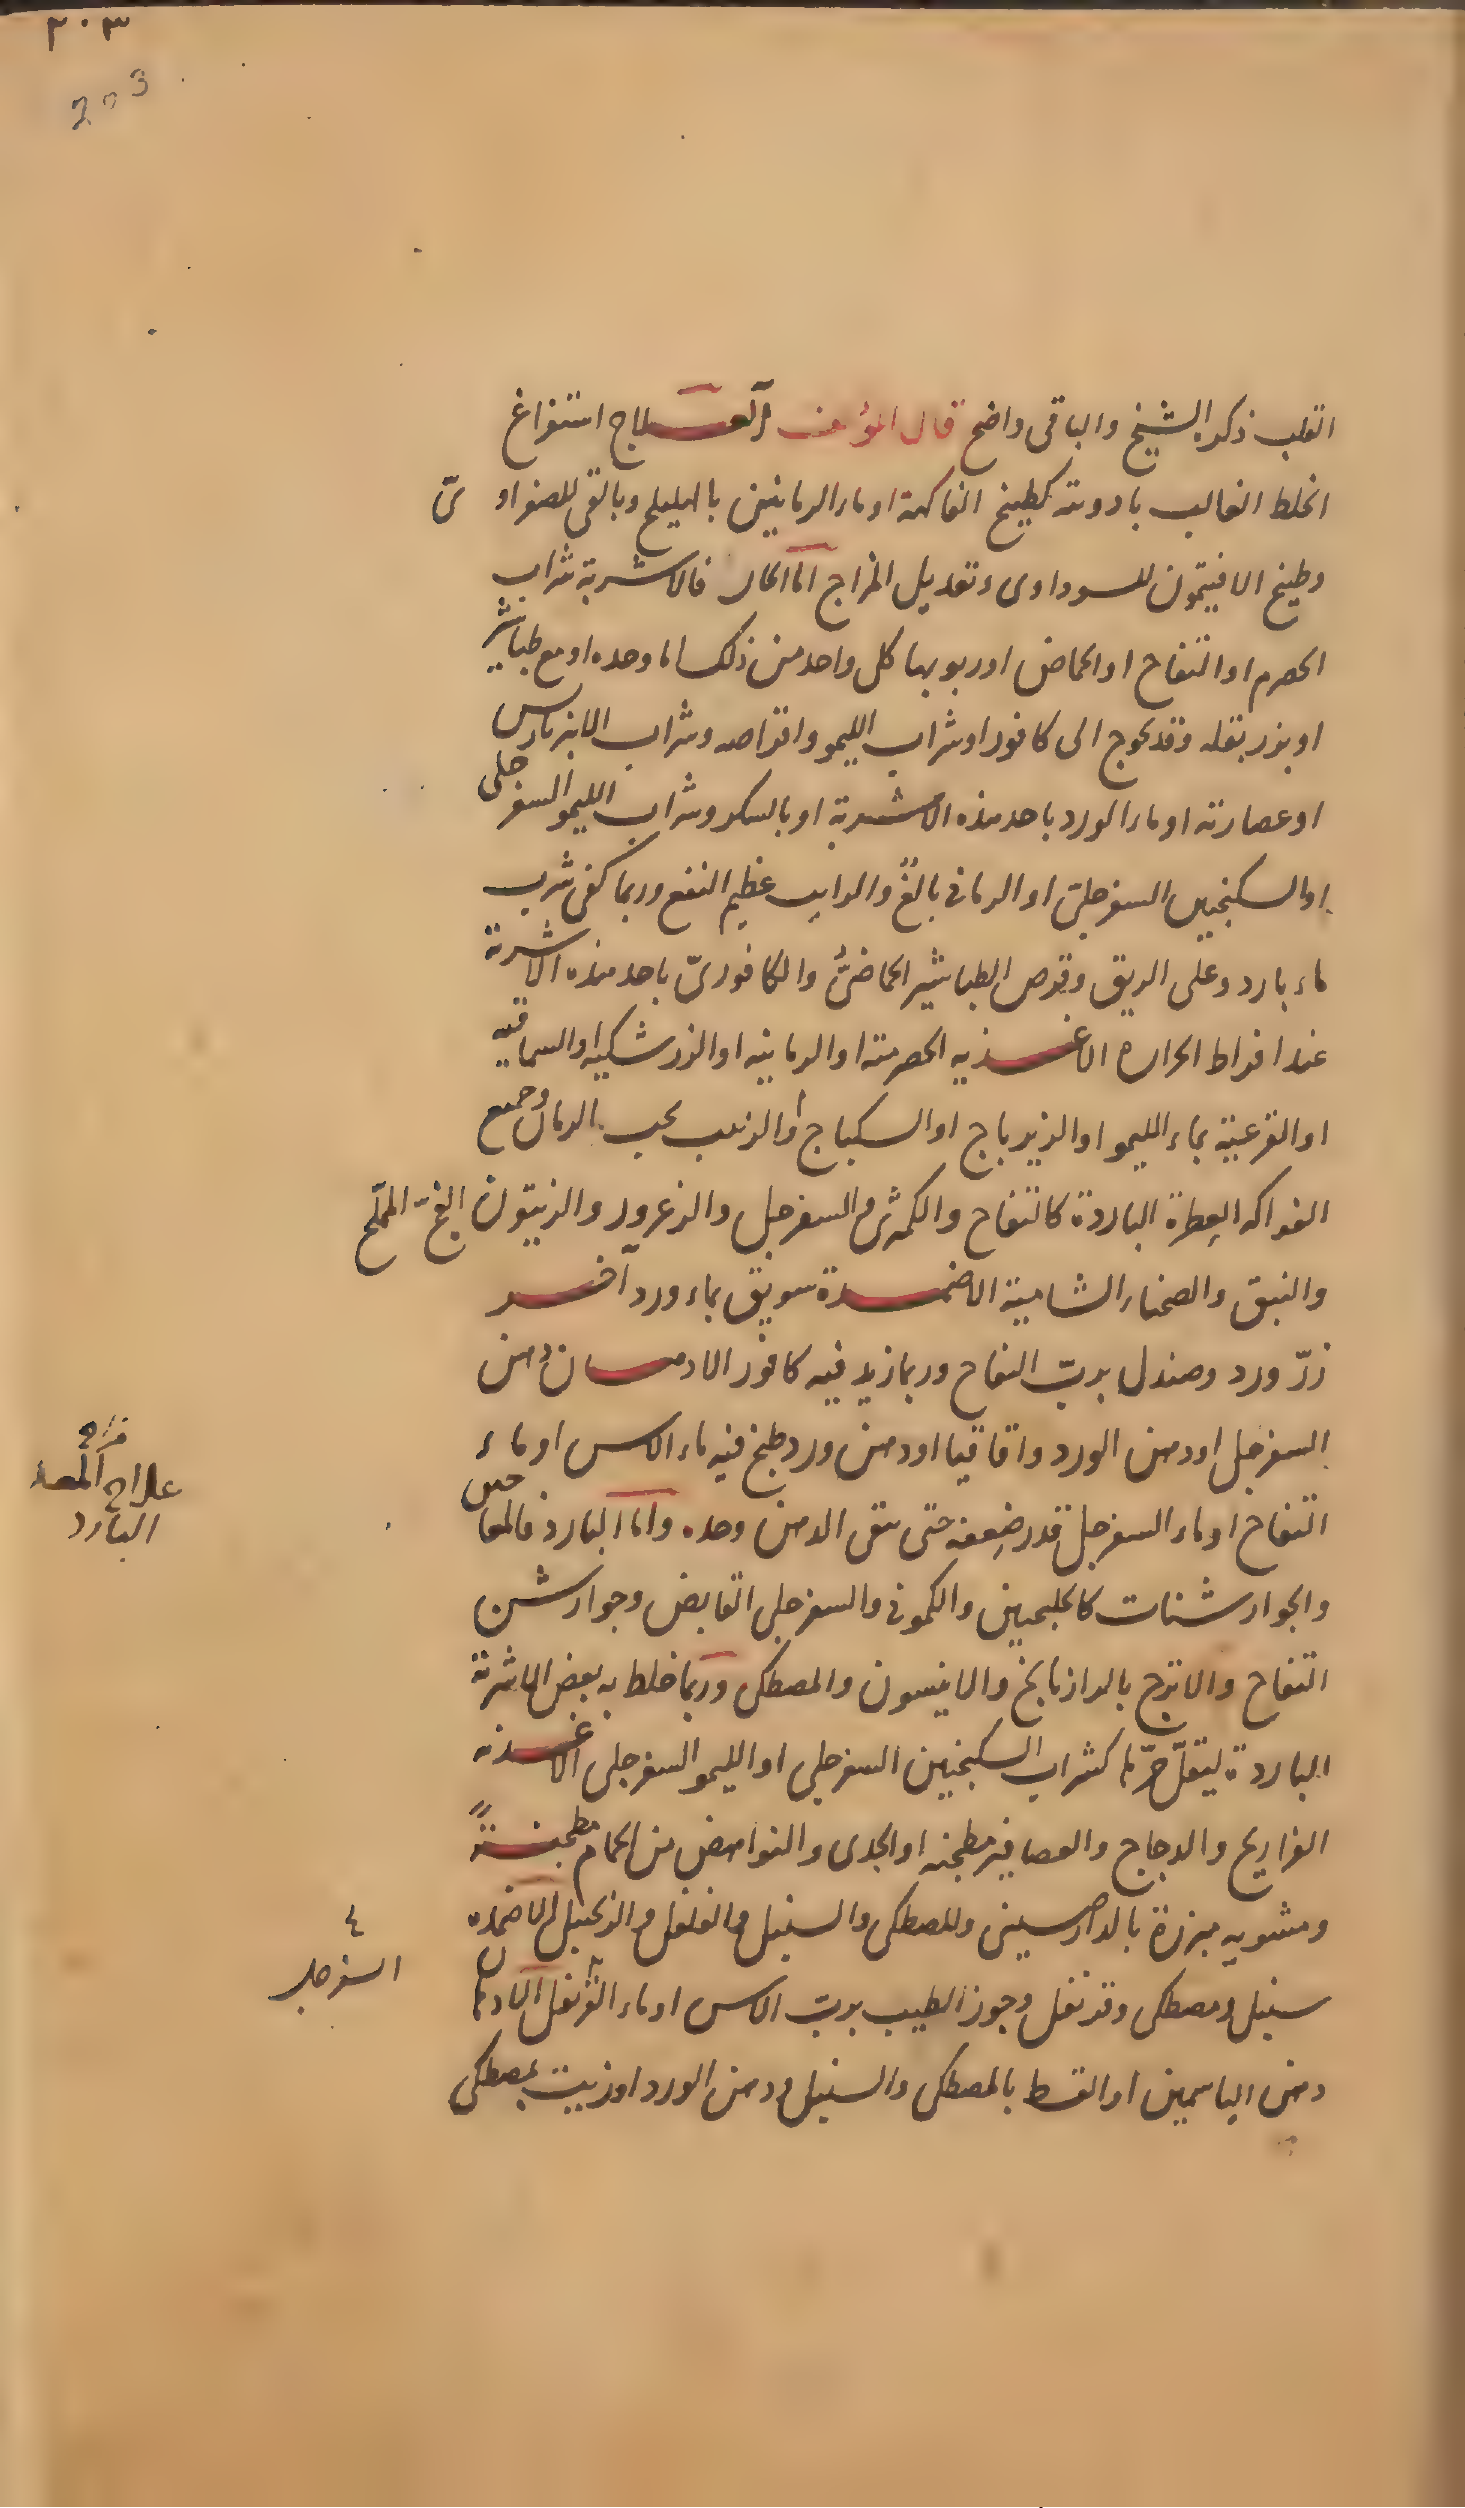 ٢٠٣
203
القلب ذكره الشيخ والباقى واضح قال المؤلف العلاج استفراغ
الخلط الغالب بادوية كطبيخ الفاكهة او ماء الرمانين بالهليلج وبالقى للصفراوىّ
وطبيخ الافيتمون للسوداوى وتعديل المزاج اما الحار فالاشربة شراب
الحصرم او التفاح او الحماض او ربوبها كل واحد من ذلك اما وحده او مع طباشير
او بزر بقله وقد يحوج الى كافور او شراب الليمو واقراصه وشراب الانبرباريس
او عصارته او ماء الورد باحد هذه الاشربة او بالسكر وشراب الليمو السفرجلى
او السكنجبين السفرجلى او الرمانى بالغ والرايب عظيم النفع وربما كفى شرب
ماء بارد وعلى الريق وقرص الطباشير الحماضىّ والكافورىّ باحد هذه الاشربة
عند افراط الحرارة الاغذيه الحصرمية او الرمانيه او الزرشكيه او السماقيه
او القرعية بماء الليمو او الزيرباج او السكباج او الزبيب بحب الرمان وجميع
الفواكه العِطرة الباردة كالتفاح والكمثرى والسفرجل والزعرور والزيتون الفج المملّح
والنبق والصحناء الشامية الاضمدة سويق بماء ورد آخر
زرّ ورد وصندل بربّ التفاح وربما زيد فيه كافور الادهان دهن
السفرجل او دهن الورد واقاقيا او دهن ورد طبخ فيه ماء الاس او ماء
التفاح او ماء السفرجل قدر ضِعفه حتى يبقى الدهن وحده واما البارد فالمعاجين
والجوارشنات كالجلنجبين والكمونى والسفرجلى القابض وجوارشن
التفاح والاترج بالرازيانج والانيسون والمصطكى وربما خلط به بعض الاشربة
الباردة ليقلّ حرّها كشراب السكنجبين السفرجلى او الليمو السفرجلى الاغذيه
الفراريج والدجاج والعصافير مطجنه او الجدى والنواهض من الحمام مطجنةً
ومشويه مبزرة بالدارصينى والمصطكى والسنبل والفلفل والزنجبيل الاضمده
سنبل ومصطكى وقرنفل وجوز الطيب بربّ الاس او ماء القرنفل الادهان
دهن الياسمين او القسط بالمصطكى والسنبل ودهن الورد او زيت بمصطكى
علاج المعده
البارد
السفرجل